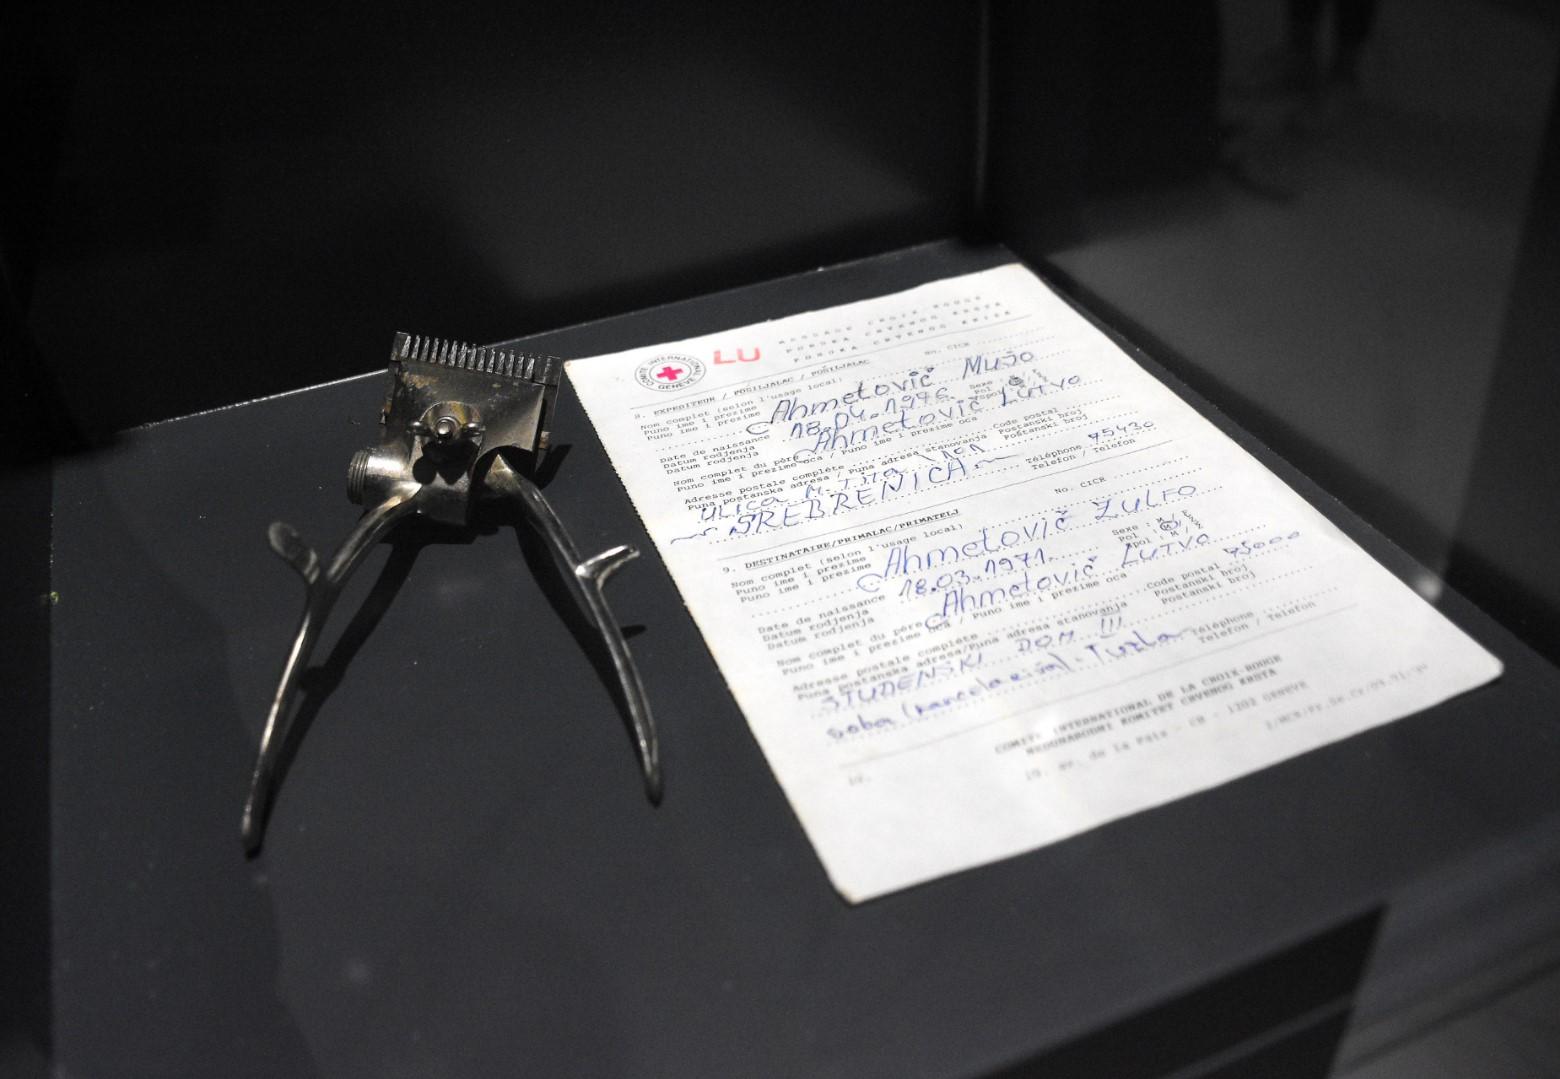 COMITÉ INTERNATIONAL GENÈVE
LU
MESSAGE CROIX-ROUGE
PORUKA CRVENOG KRSTA
PORUKA CRVENOG KRIŽA
8. EXPEDITEUR / POŠILJALAC / POŠILJALAC
No. CICR
Nom complet (selon l'usage local)
Puno ime i prezime
Puno ime i prezime
Ahmetović Mujo
Sexe
Pol
Spol
Date de naissance
Datum rodjenja
Datum rodjenja
18.04.1976.
Nom complet du père / Puno ime i prezime oca
Puno ime i prezime oca
Ahmetović Lutvo
Adresse postale complète / Puna adresa stanovanja
Puna postanska adresa
Code postal
Postanski broj
Poštanski broj
75430
ULICA M. TITA
SREBRENICA
Téléphone
Telefon / Telefon
9. DESTINATAIRE/PRIMALAC/PRIMATELJ
No. CICR
Nom complet (selon l'usage local)
Puno ime i prezime
Puno ime i prezime
Ahmetović ZULFO
Sexe
Pol
Spol
Date de naissance
Datum rodjenja
Datum rodjenja
18.03.1971.
Nom complet du père / Puno ime i prezime oca
Puno ime i prezime oca
Ahmetović LUTVO
Adresse postale complète
Puna postanska adresa/Puna adresa stanovanja
Code postal
Postanski broj
Poštanski broj
75000
STUDENSKI DOM III
soba Tuzla
Téléphone
Telefon / Telefon
COMITE INTERNATIONAL DE LA CROIX-ROUGE
MEDUNARODNI KOMITET CRVENOG KRSTA
19, av. de la Paix - CH - 1202 GENEVE
10.